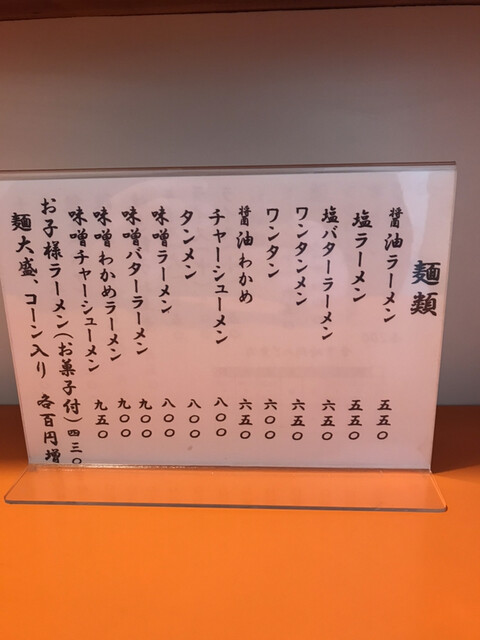 麺類
醤油ラーメン 五五〇
塩ラーメン 五五〇
塩バターラーメン 六五〇
ワンタンメン 六五〇
ワンタン 六〇〇
醤油わかめ 六五〇
チャーシューメン 八〇〇
タンメン 八〇〇
味噌ラーメン 八〇〇
味噌バターラーメン 九〇〇
味噌わかめラーメン 九〇〇
味噌チャーシューメン 九五〇
お子様ラーメン(お菓子付) 四三〇
麺大盛、コーン入り 各百円増